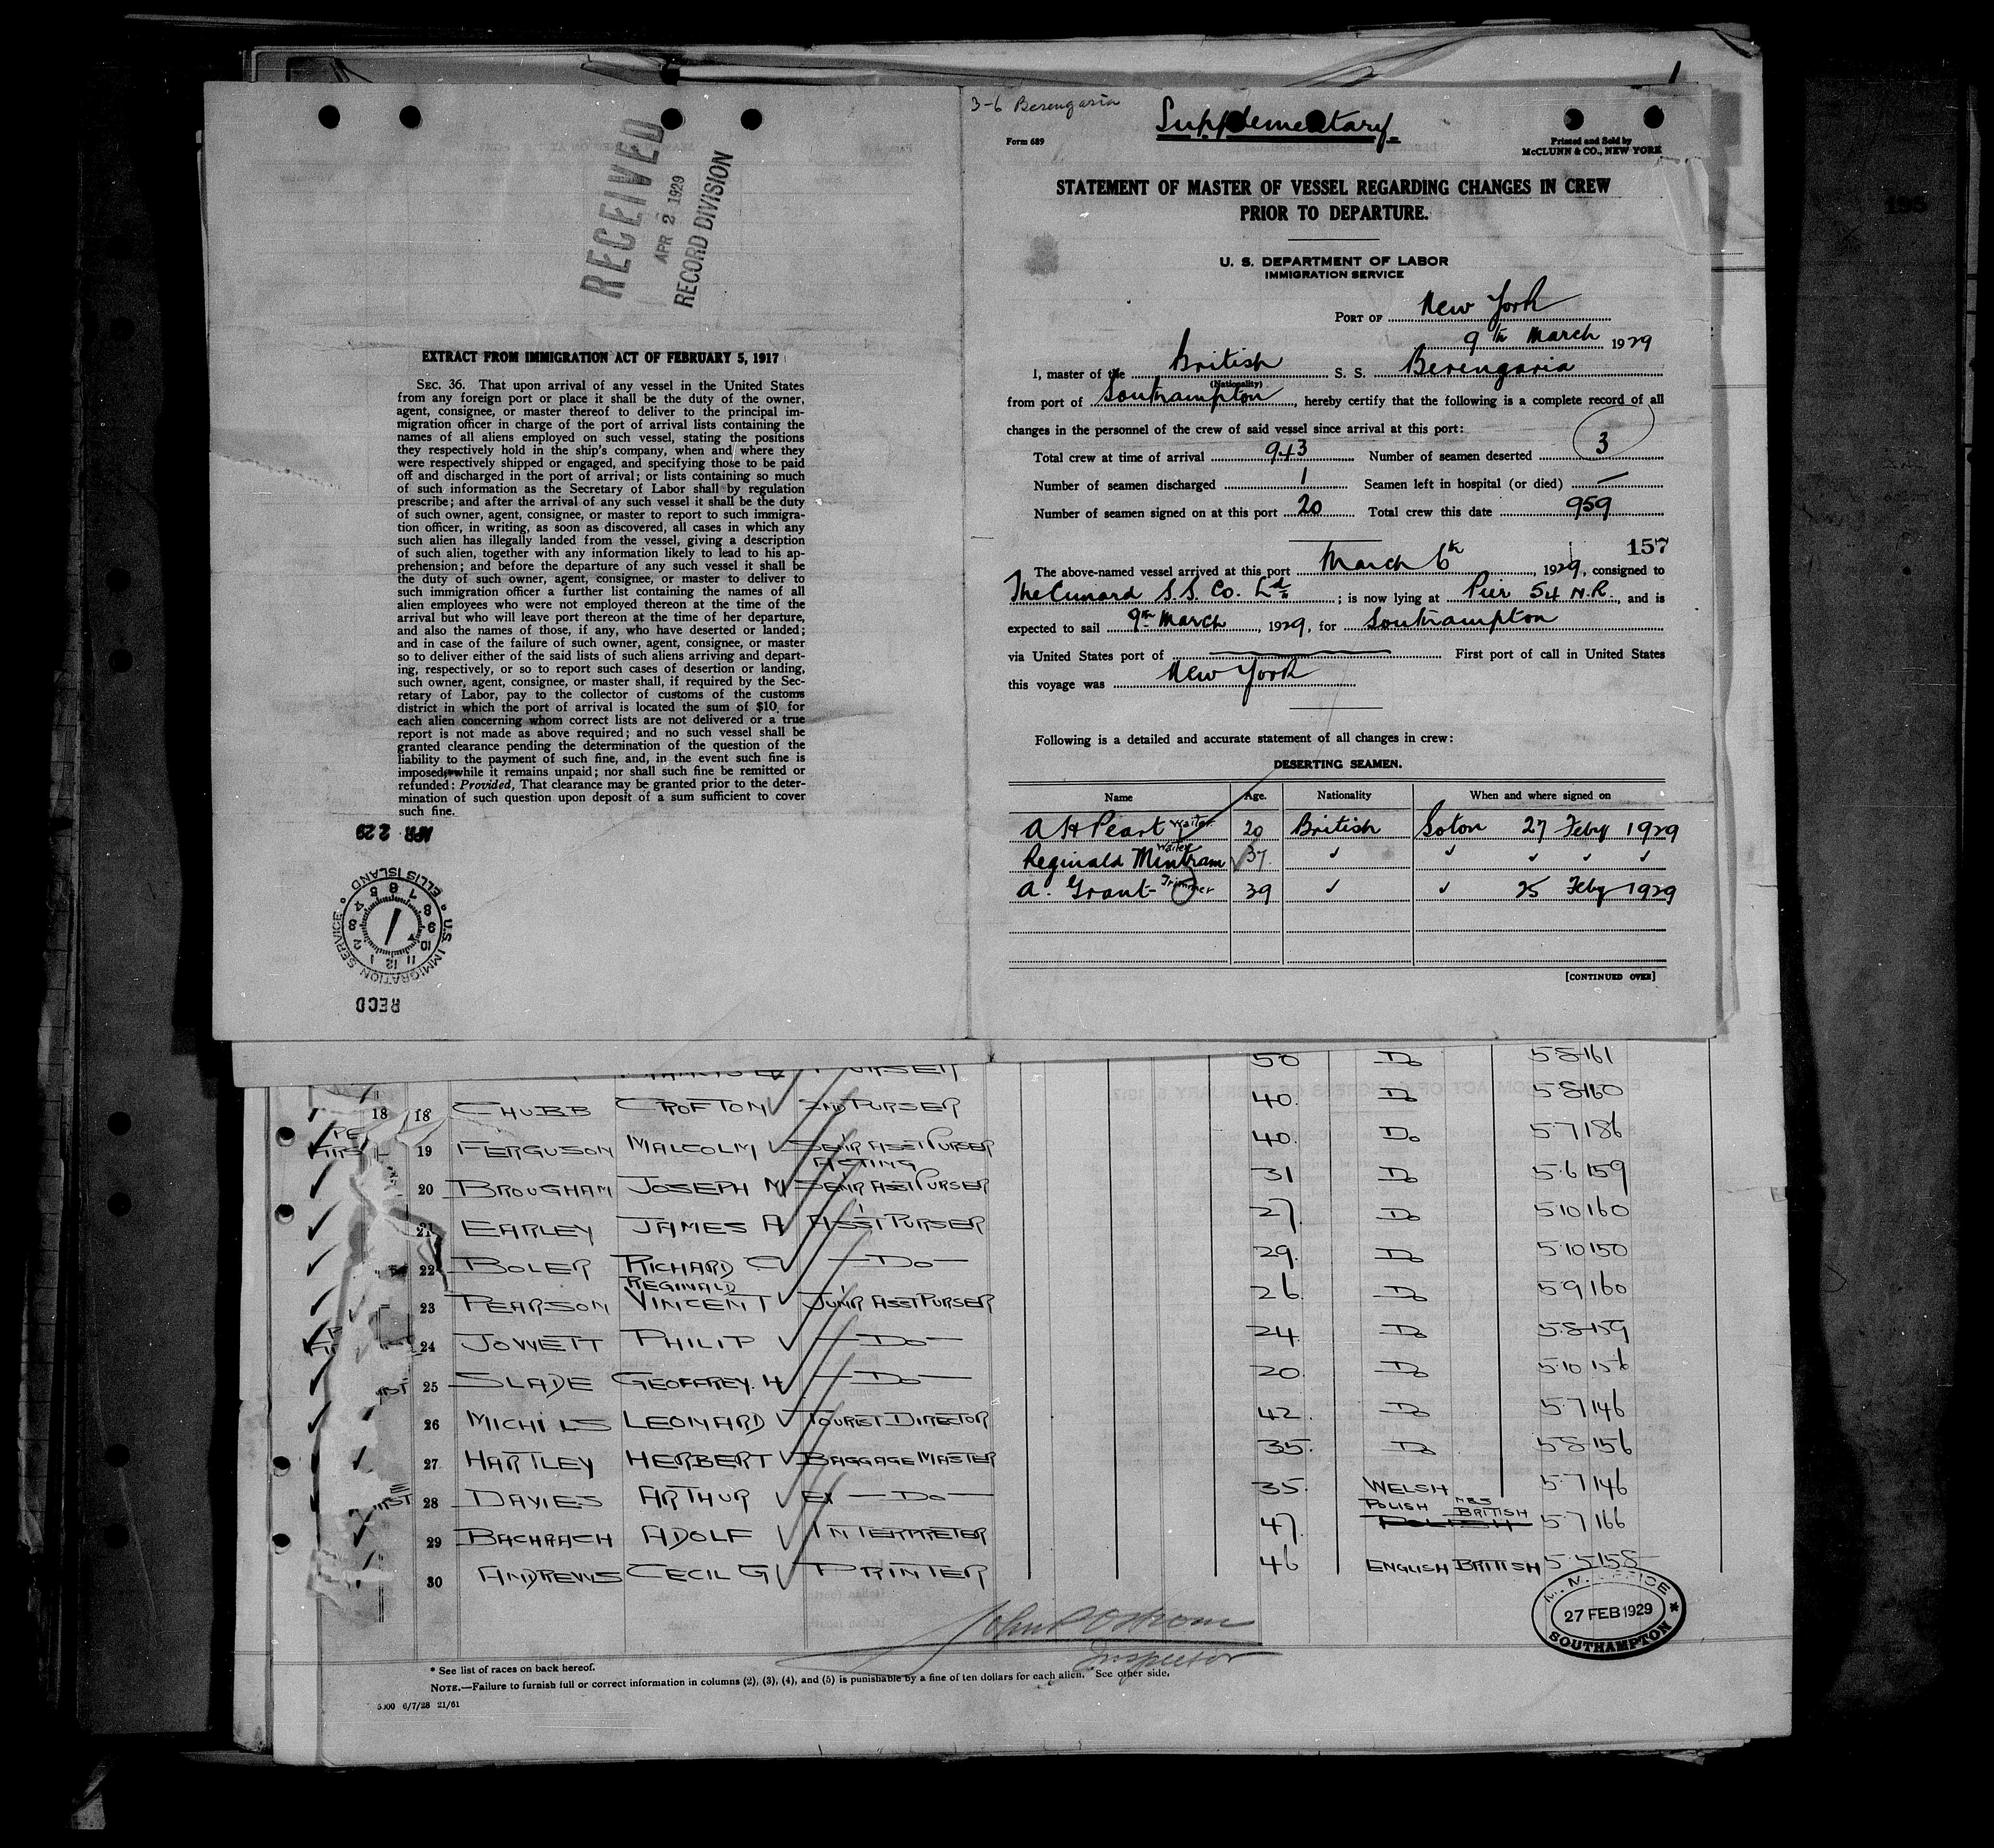 RECEIVED
APR 2 1929
RECORD DIVISION
EXTRACT FROM IMMIGRATION ACT OF FEBRUARY 5, 1917
SEC. 36. That upon arrival of any vessel in the United States
from any foreign port or place it shall be the duty of the owner,
agent, consignee, or master thereof to deliver to the principal im-
migration officer in charge of the port of arrival lists containing the
names of all aliens employed on such vessel, stating the positions
they respectively hold in the ship's company, when and where they
were respectively shipped or engaged, and specifying those to be paid
off and discharged in the port of arrival; or lists containing so much
of such information as the Secretary of Labor shall by regulation
prescribe; and after the arrival of any such vessel it shall be the duty
of such owner, agent, consignee, or master to report to such immigra-
tion officer, in writing, as soon as discovered, all cases in which any
such alien has illegally landed from the vessel, giving a description
of such alien, together with any information likely to lead to his ap-
prehension; and before the departure of any such vessel it shall be
the duty of such owner, agent, consignee, or master to deliver to
such immigration officer a further list containing the names of all
alien employees who were not employed thereon at the time of the
arrival but who will leave port thereon at the time of her departure,
and also the names of those, if any, who have deserted or landed;
and in case of the failure of such owner, agent, consignee, or master
so to deliver either of the said lists of such aliens arriving and depart-
ing, respectively, or so to report such cases of desertion or landing,
such owner, agent, consignee, or master shall, if required by the Sec-
retary of Labor, pay to the collector of customs of the customs
district in which the port of arrival is located the sum of $10 for
each alien concerning whom correct lists are not delivered or a true
report is not made as above required; and no such vessel shall be
granted clearance pending the determination of the question of the
liability to the payment of such fine, and, in the event such fine is
imposed, while it remains unpaid; nor shall such fine be remitted or
refunded: Provided, That clearance may be granted prior to the deter-
mination of such question upon deposit of a sum sufficient to cover
such fine.
APR 2 29
U.S. IMMIGRATION SERVICE ELLIS ISLAND
1 2 3 4 5 6 7 8 9 10 11 12
RECD
1
3-6 Berengaria
Supplementary
Form 689
Printed and Sold by
McCLUNN & CO., NEW YORK
STATEMENT OF MASTER OF VESSEL REGARDING CHANGES IN CREW
PRIOR TO DEPARTURE.
U. S. DEPARTMENT OF LABOR
IMMIGRATION SERVICE
PORT OF New York
9th March 1929
I, master of the British S. S. Berengaria
(Nationality)
from port of Southampton, hereby certify that the following is a complete record of all
changes in the personnel of the crew of said vessel since arrival at this port:
Total crew at time of arrival 943 Number of seamen deserted 3
Number of seamen discharged 1 Seamen left in hospital (or died) —
Number of seamen signed on at this port 20 Total crew this date 959
157
The above-named vessel arrived at this port March 6th, 1929, consigned to
The Cunard S.S. Co. Ltd; is now lying at Pier 54 N.R., and is
expected to sail 9th March, 1929, for Southampton
via United States port of — First port of call in United States
this voyage was New York
Following is a detailed and accurate statement of all changes in crew:
DESERTING SEAMEN.
Name Age. Nationality When and where signed on
A H Peart Waiter 20 British Soton 27 Feby 1929
Reginald Mintram Waiter 37 ✓ ✓ ✓ ✓ ✓
A. Grant Trimmer 39 ✓ ✓ 25 Feby 1929
[CONTINUED OVER]
50 Do 5 8 161
18 18 CHUBB CROFTON 2ND PURSER 40. Do 5 8 160
19 FERGUSON MALCOLM SENR ASST PURSER 40. Do 5 7 186
ACTING
20 BROUGHAM JOSEPH M SENR ASST PURSER 31 Do 5 6 159
21 EARLEY JAMES A ASST PURSER 27. Do 5 10 160
22 BOLER RICHARD C — DO — 29. Do 5 10 150
REGINALD
23 PEARSON VINCENT JUNR ASST PURSER 26 Do 5 9 160
24 JOWETT PHILIP — DO — 24. Do 5 8 159
25 SLADE GEOFFREY. H — DO — 20 Do 5 10 156
26 MICHILS LEONARD TOURIST DIRECTOR 42. Do 5 7 146
27 HARTLEY HERBERT BAGGAGE MASTER 35. Do 5 8 156
28 DAVIES ARTHUR EX — DO — 35. WELSH 5 7 146
POLISH BRITISH
29 BACHRACH ADOLF INTERPRETER 47. POLISH 5 7 166
30 ANDREWS CECIL G PRINTER 46 ENGLISH BRITISH 5 5 158
John P Ostrom
Inspector
OFFICE
27 FEB 1929
SOUTHAMPTON
* See list of races on back hereof.
NOTE.—Failure to furnish full or correct information in columns (2), (3), (4), and (5) is punishable by a fine of ten dollars for each alien. See other side.
5000 6/7/28 21/61
195